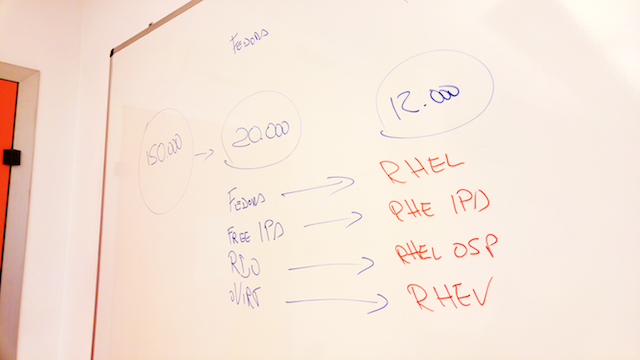 FEDORA
150.000 → 20.000
12.000
FEDORA → RHEL
FREE IPA → RHE IPA
RDO → RHEL OSP
OVIRT → RHEV